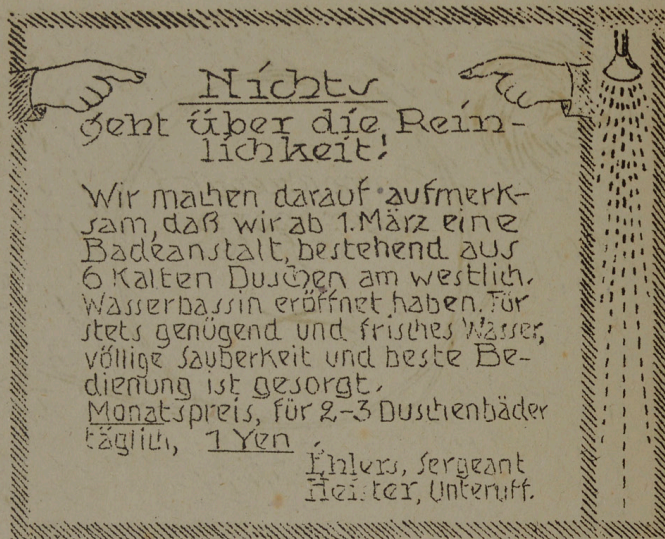 Nichts
geht über die Rein-
lichkeit!
Wir machen darauf aufmerk-
sam, daß wir ab 1. März eine
Badeanstalt, bestehend aus
6 Kalten Duschen am westlich.
Wasserbassin eröffnet haben. Für
stets genügend und frisches Wasser,
völlige Sauberkeit und beste Be-
dienung ist gesorgt.
Monatspreis, für 2-3 Duschenbäder
täglich, 1 Yen.
Ehlers, Sergeant
Heister, Unteroff.